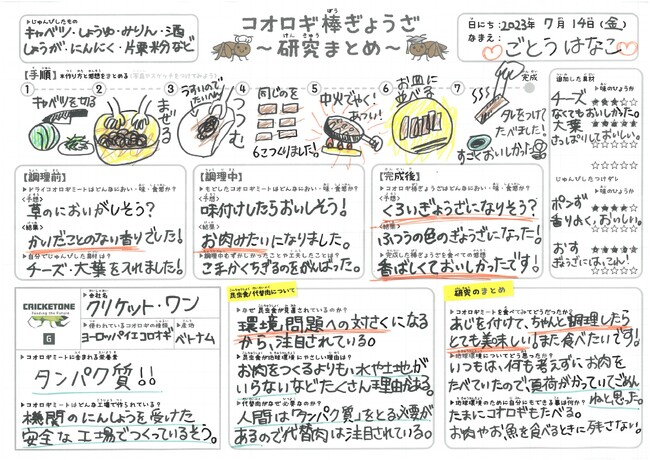 ▶じゅんびしたもの
キャベツ・しょうゆ・みりん・酒
しょうが・にんにく・片栗粉など
コオロギ棒ぎょうざ
～研究まとめ～
ぼう
けん きゅう
日にち：2023年 7月14日(金)
なまえ：
ごとう はなこ
【手順】
※作り方と感想をまとめる
①
②
③
④
⑤
⑥
⑦
完成
キャベツを切る
まぜる
うすいのでたいへん
つつむ
同じのを
6こつくりました!。
中火でやく!
あつい!
お皿に
並べる
タレをつけて
たべました!
すごくおいしかった
追加した素材
▶味のひょうか
チーズ ★★★☆☆
なくてもおいしかった。
大葉 ★★★★★
さっぱりしておいしい。
☆☆☆☆☆
じゅんびしたつけダレ
▶味のひょうか
ポンず
香りよく、おいしい。
おす
ぎょうざにはってん!
☆☆☆☆☆
【調理前】
▶ドライコオロギミートはどんな
<予想>
草のにおいがしそう?
<結果>
かいだことのない香りでした!
▶自分でじゅんびした素材は?
チーズ・大葉を入れました!
【調理中】
▶もどしたコオロギミートはどんな
<予想>
味付けしたらおいしそう!
<結果>
お肉みたいになりました。
▶調理中むずかしかったことや工夫したことは?
こまかくちぎるのをがんばった。
【完成後】
▶コオロギ棒ぎょうざはどんな
<予想>
くろいぎょうざになりそう?
<結果>
ふつうの色のぎょうざになった!
▶完成した棒ぎょうざを食べての感想
香ばしくておいしかったです!
CRICKETONE
▶会社名
クリケット・ワン
▶使われているコオロギの種類
ヨーロッパイエコオロギ
▶産地
ベトナム
▶コオロギミートに含まれる栄養素
タンパク質!!
▶コオロギミートはどんな工場で作られている?
機関のにんしょうを受けた
安全な工場でつくっているそう。
昆虫食/代替肉について
▶なぜ昆虫食が注目されているのか?
環境問題への対さくになる
から、注目されている。
▶昆虫食が地球環境にやさしい理由は?
お肉をつくるよりも、水や土地が
いらないなどたくさん理由がある。
▶代替肉がなぜ必要なのか?
人間は「タンパク質」をとる必要が
あるので代替肉は注目されている。
研究のまとめ
▶コオロギミートを食べてみてどうだったか?
あじを付けて、ちゃんと調理したら
とても美味しい!また食べたいです!
▶地球環境についてどう思ったか?
いつもは、何も考えずにお肉を
たべていたので、負荷がかっていてごめん
ねと思った。
▶地球環境のために自分にもできる事は何か?
たまにコオロギもたべる。
お肉やお魚を食べるときに残さない。